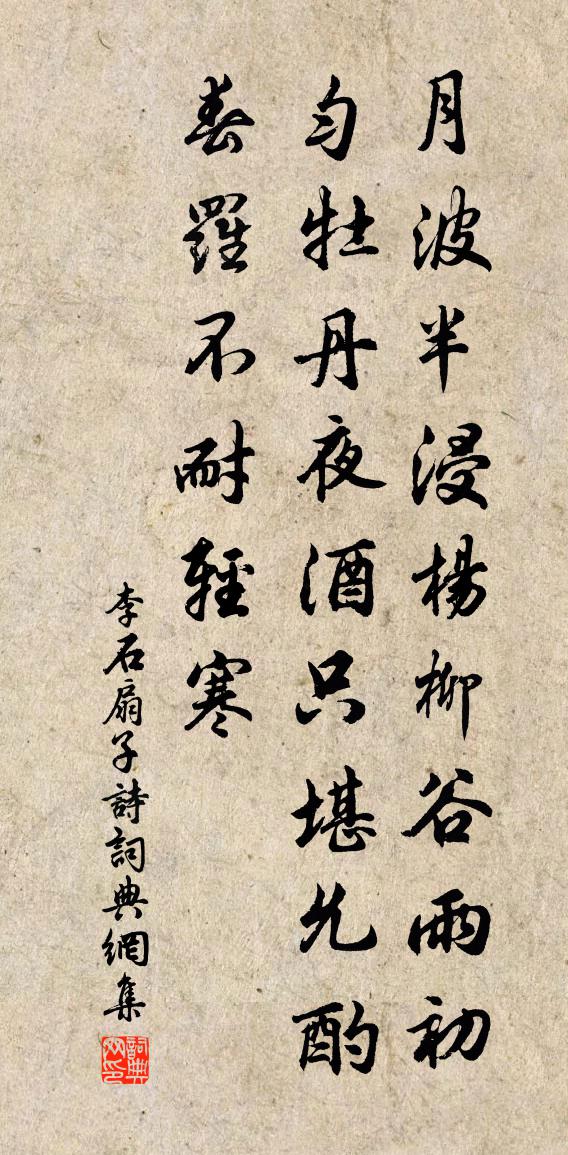 月波半浸楊柳谷雨初
勻牡丹夜酒只堪允酌
春羅不耐輕寒
李石扇子詩詞典網集
詞典網印